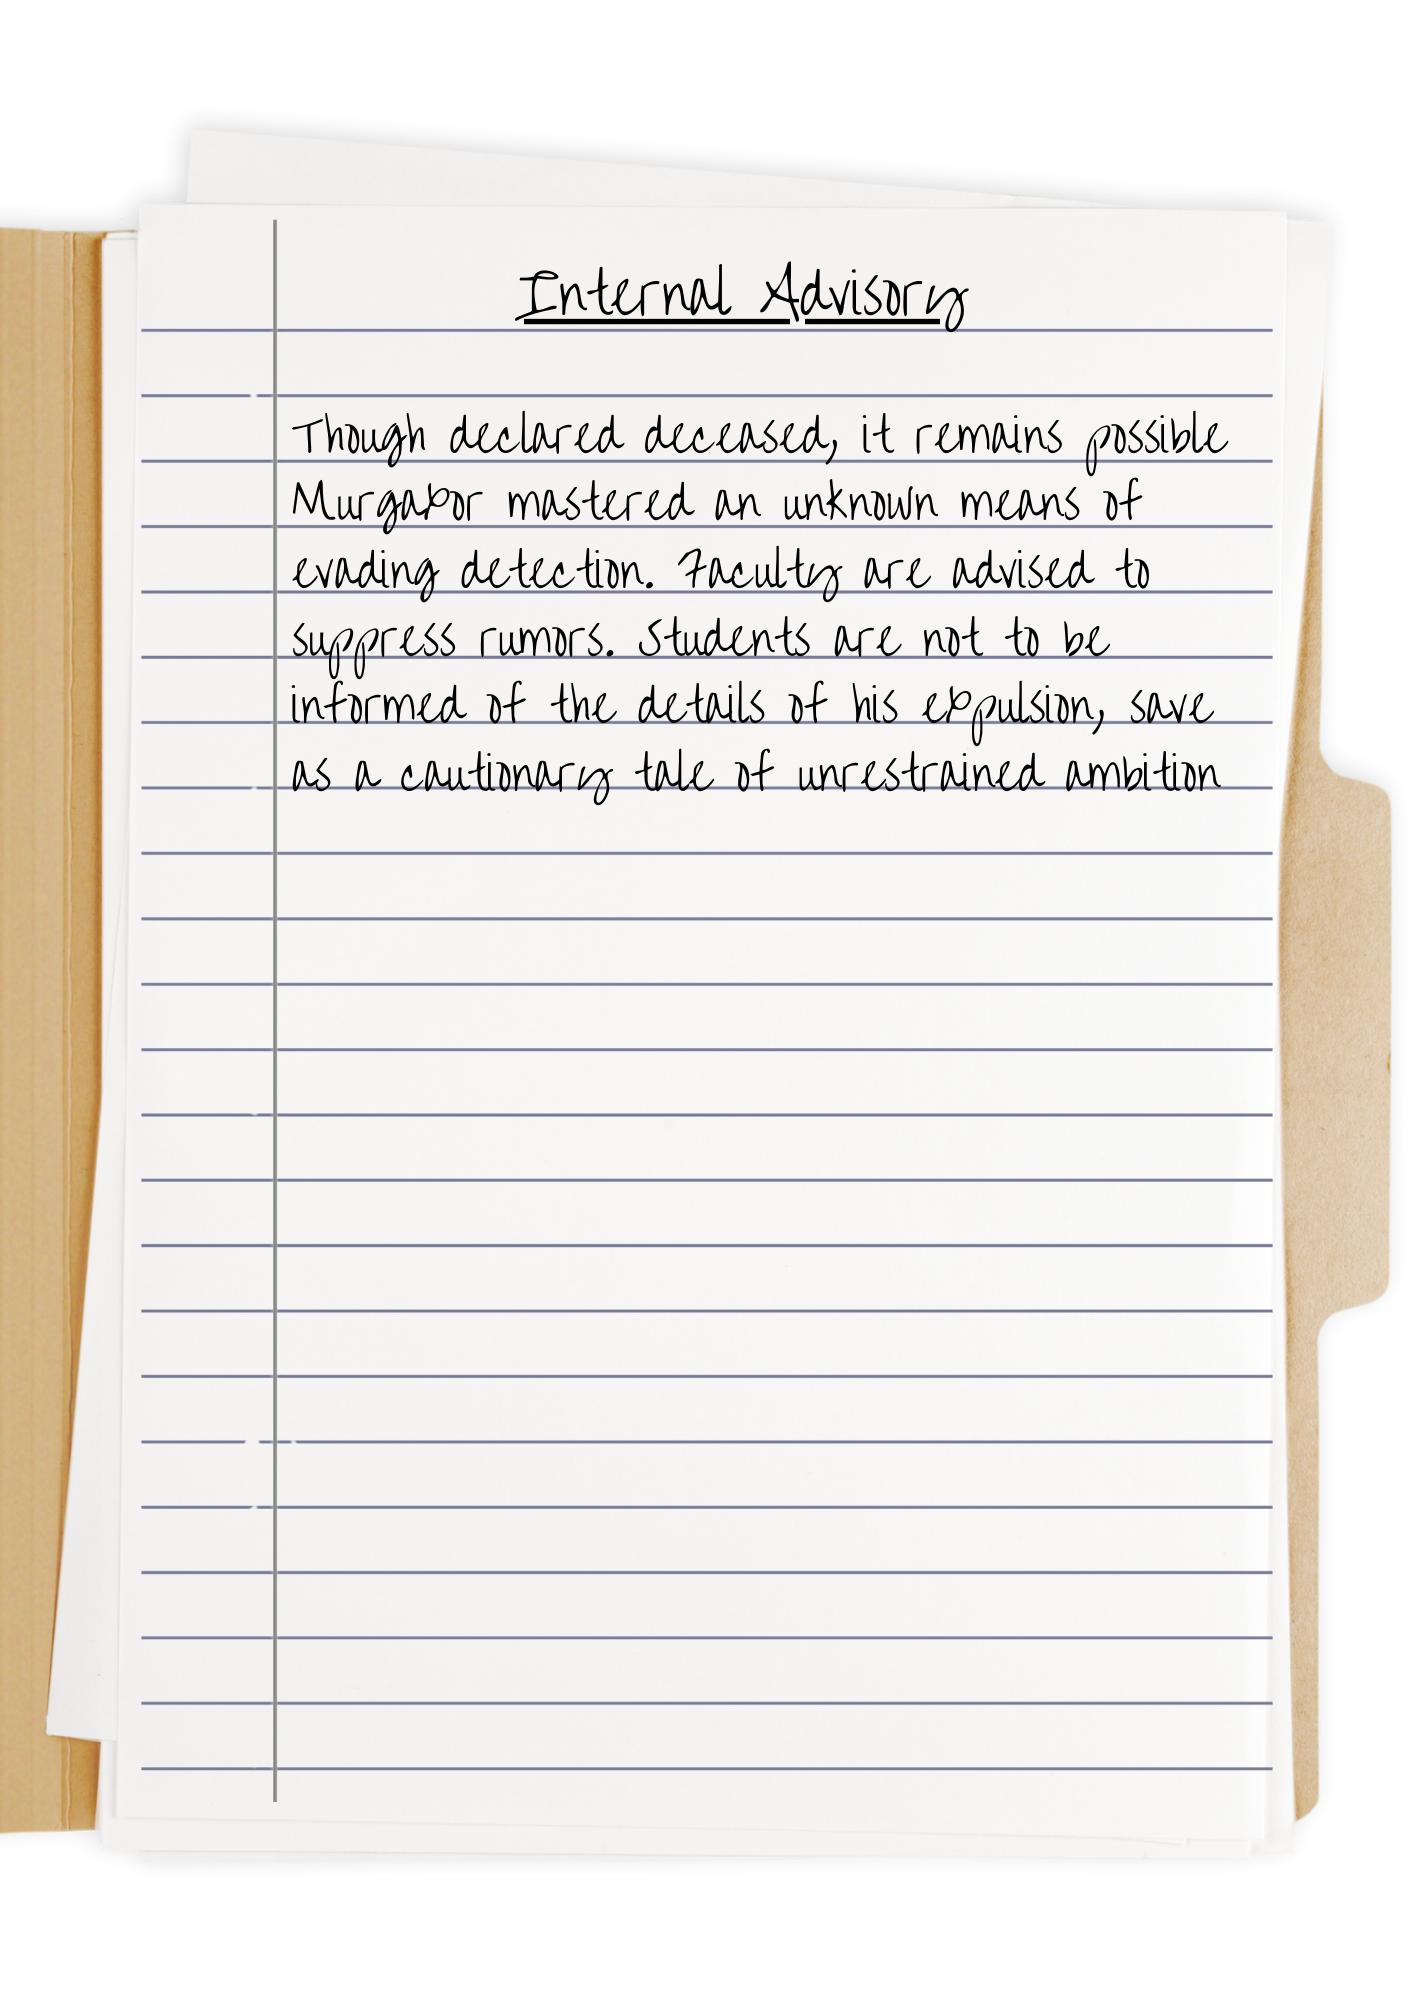 Internal Advisory
Though declared deceased, it remains possible
Murgaxor mastered an unknown means of
evading detection. Faculty are advised to
suppress rumors. Students are not to be
informed of the details of his expulsion, save
as a cautionary tale of unrestrained ambition